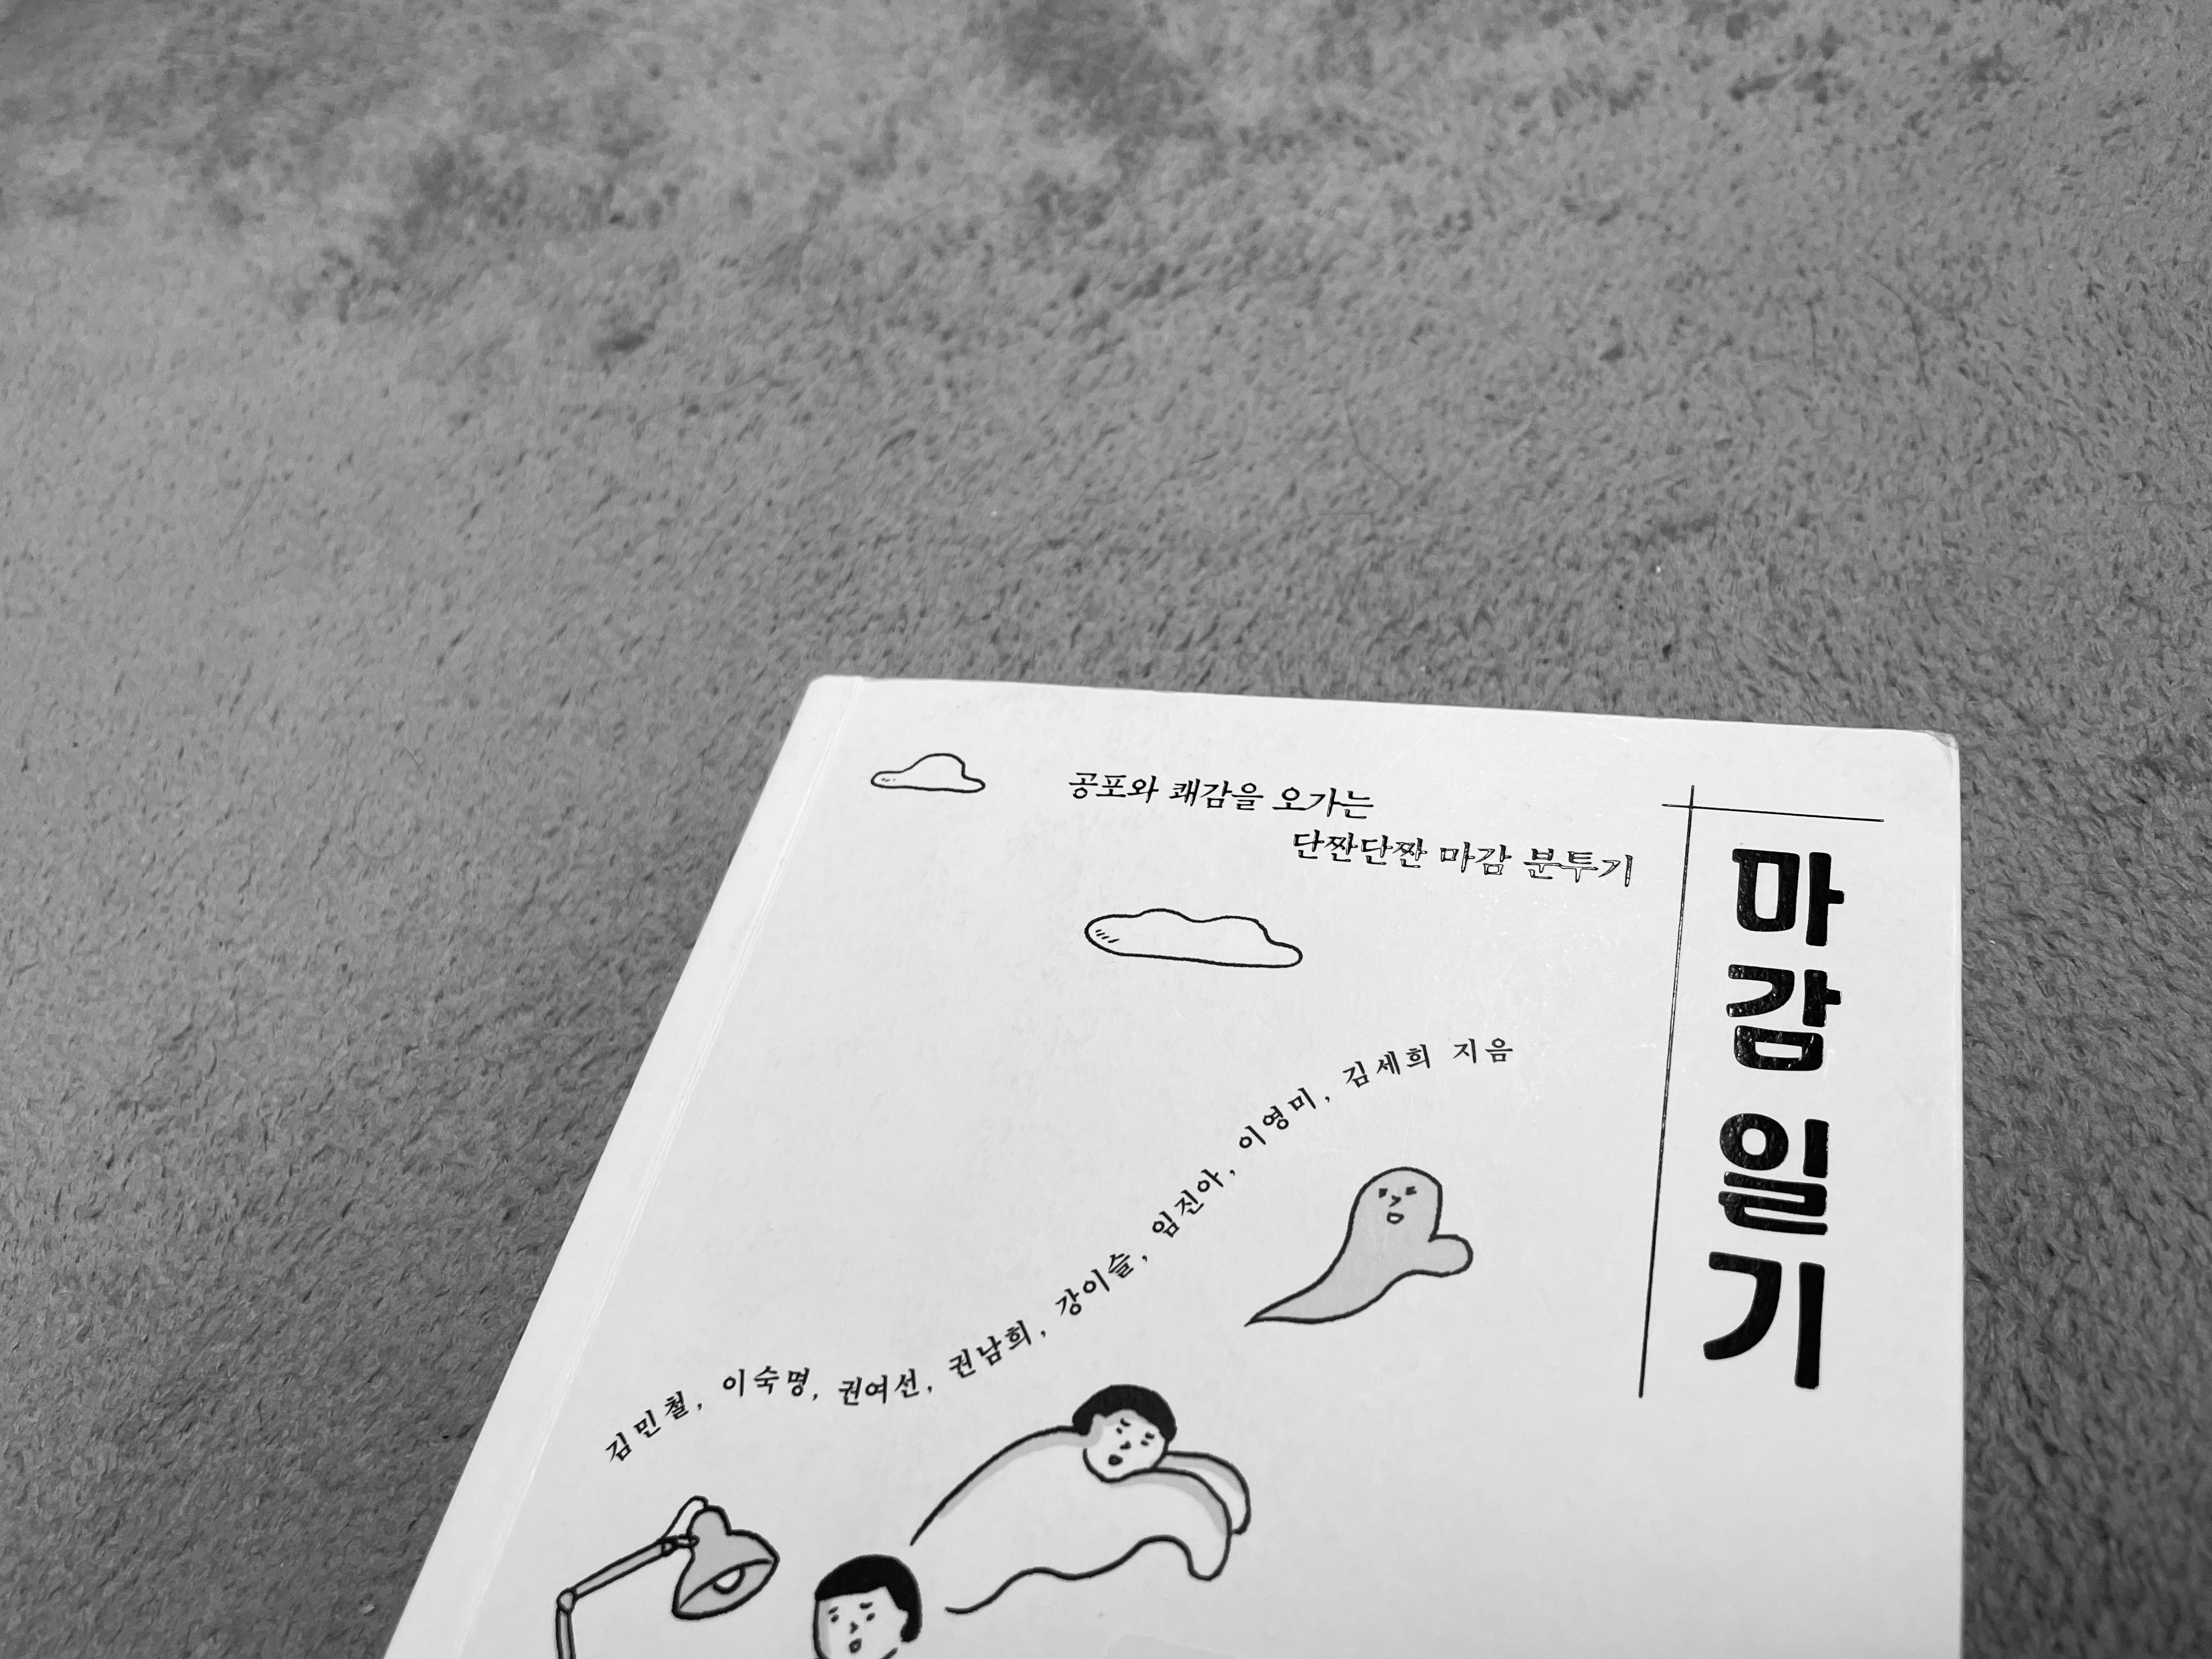 공포와 쾌감을 오가는
단짠단짠 마감 분투기
마감 일기
김민철, 이숙명, 권여선, 권남희, 강이슬, 임진아, 이영미, 김세희 지음